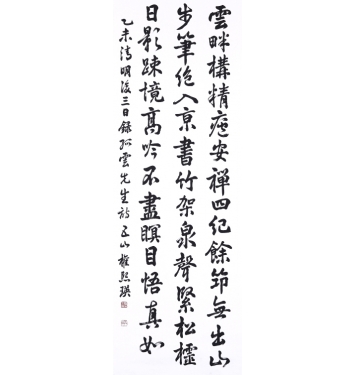 雲畔構精廬安禪四紀餘筇無出山
步筆絶入京書竹架泉聲緊松欞
日影踈境高吟不盡瞑目悟真如
乙未清明後三日錄孤雲先生詩山權熙